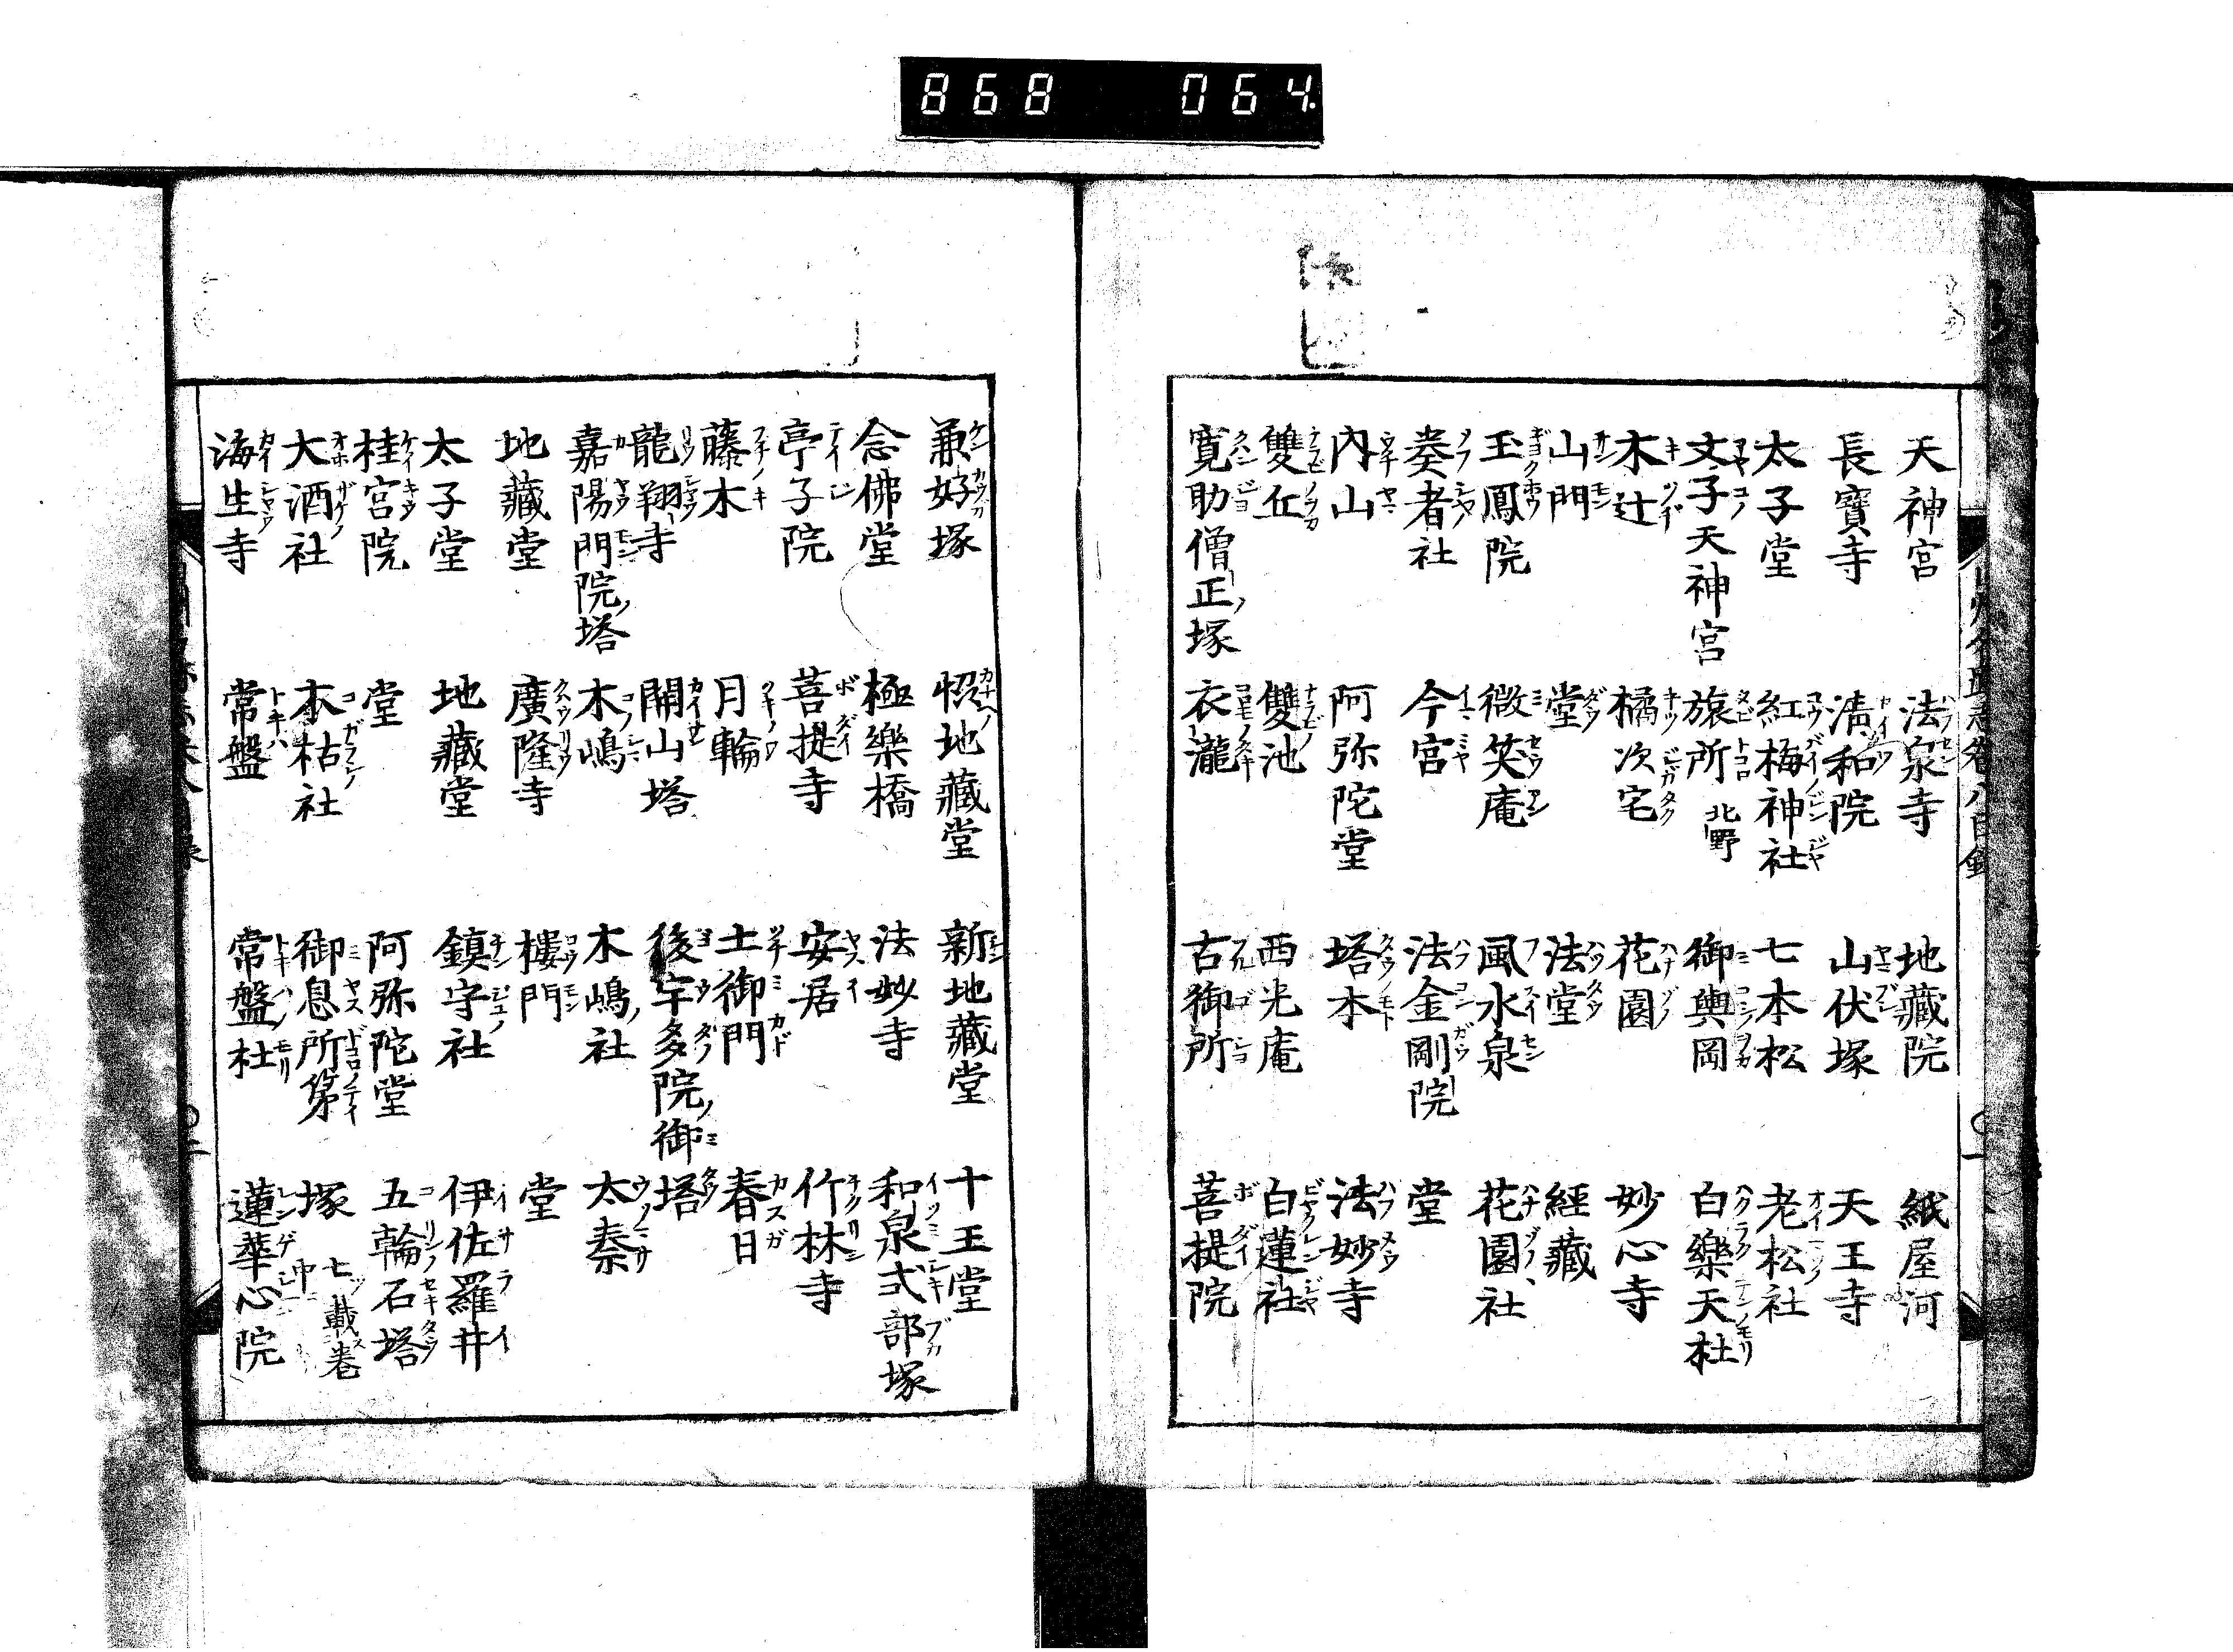 868 064
天神宮 法泉寺 地藏院 紙屋河
長寶寺 清和院 山伏塚 天王寺
太子堂 紅梅神社 七本松 老松社
文子天神宮 旅所 北野 御輿岡 白樂天杜
木辻 橘次宅 花園 妙心寺
山門 堂 法堂 經藏
玉鳳院 微笑庵 風水泉 花園社
葵者社 今宮 法金剛院 堂
內山 阿弥陀堂 塔本 法妙寺
雙丘 雙池 西光庵 白蓮社
寛助僧正塚 衣瀧 古御所 菩提院
兼好塚 地藏堂 新地藏堂 十王堂
念佛堂 極樂橋 法妙寺 和泉式部塚
亭子院 菩提寺 安居 竹林寺
藤木 月輪 土御門 春日
龍翔寺 開山塔 後宇多院ノ御塔
嘉陽門院ノ塔 木嶋 木嶋ノ社 太秦
地藏堂 廣隆寺 樓門 堂
太子堂 地藏堂 鎮守社 伊佐羅井
桂宮院 堂 阿弥陀堂 五輪石塔
大酒社 木枯社 御息所第 塚
海生寺 常盤 常盤杜 蓮華心院